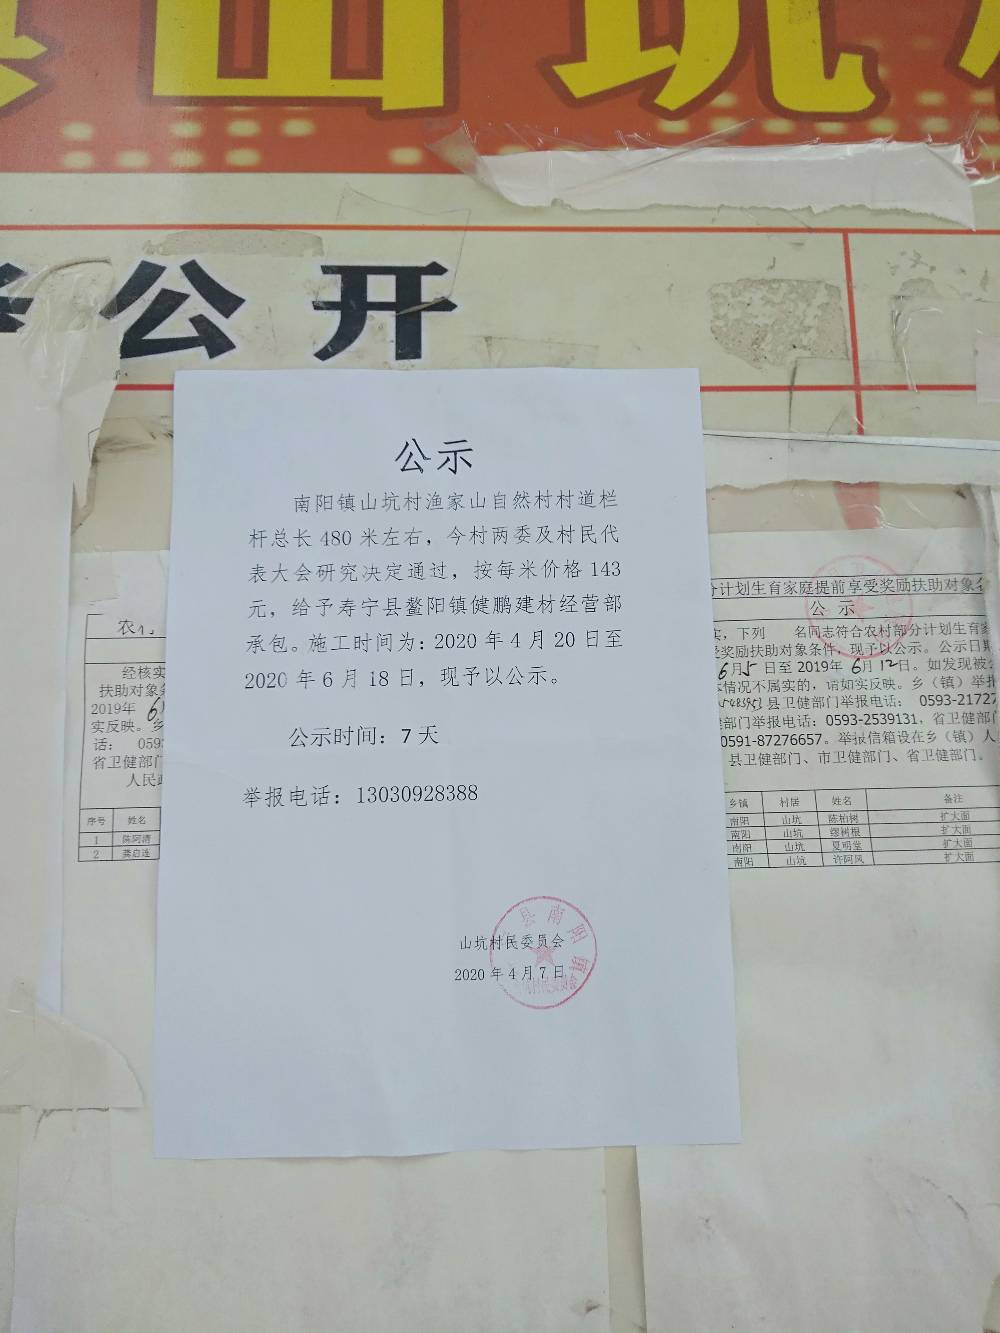 山坑
公开
公示
南阳镇山坑村渔家山自然村村道栏
杆总长 480 米左右，今村两委及村民代
表大会研究决定通过，按每米价格 143
元，给予寿宁县鳌阳镇健鹏建材经营部
承包。施工时间为：2020 年 4 月 20 日至
2020 年 6 月 18 日，现予以公示。
公示时间：7 天
举报电话：13030928388
山坑村民委员会
2020 年 4 月 7 日
县南阳镇
农
经核实
扶助对象条
2019年 6
实反映。乡
话： 0593
省卫健部门
人民政
序号 姓名
1 陈阿清
2 龚启连
计划生育家庭提前享受奖励扶助对象
公 示
实，下列 名同志符合农村部分计划生育家
受奖励扶助对象条件，现予以公示。公示日期
6月5 日至 2019年 6月 12日。如发现被
情况不属实的，请如实反映。乡（镇）举报
县卫健部门举报电话：0593-21727
部门举报电话：0593-2539131，省卫健部门
0591-87276657。举报信箱设在乡（镇）人
县卫健部门、市卫健部门、省卫健部门。
乡镇 村居 姓名 备注
南阳 山坑 陈柏树 扩大面
南阳 山坑 缪树根 扩大面
南阳 山坑 夏明堂 扩大面
南阳 山坑 许阿凤 扩大面